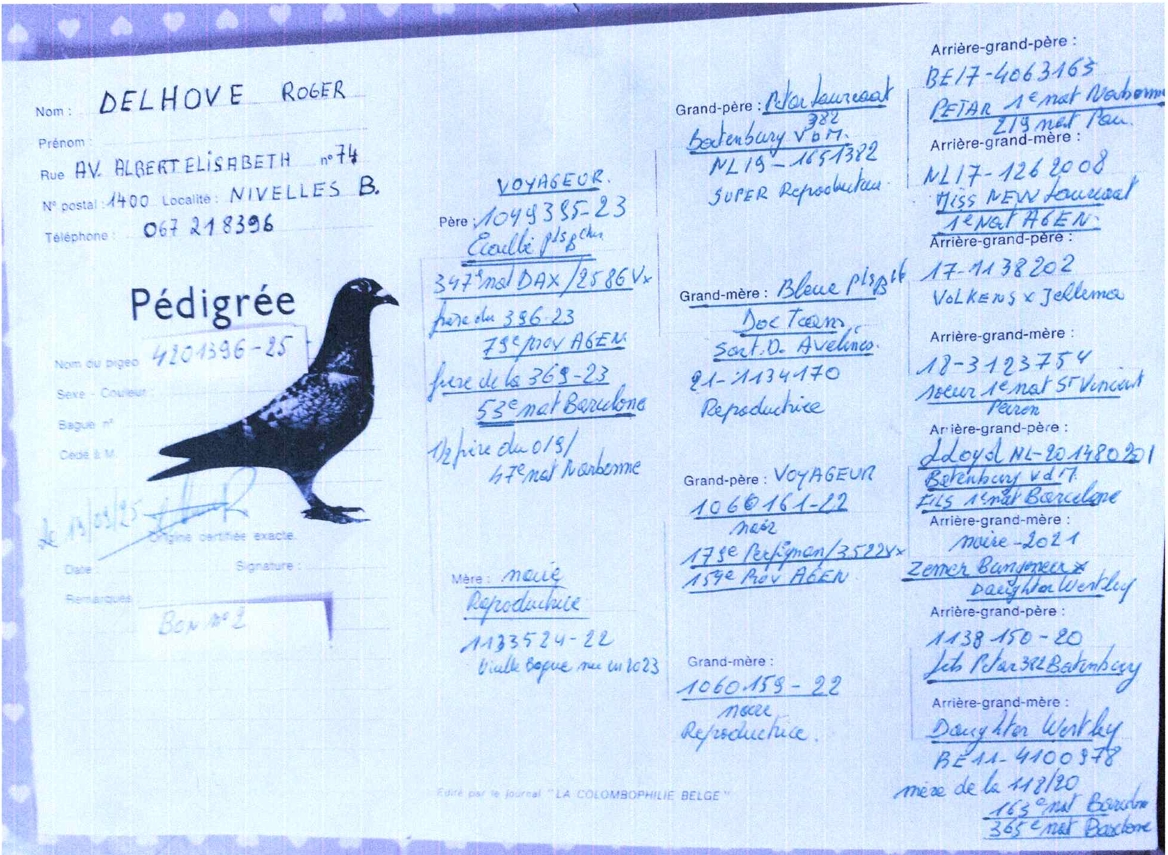 Nom : DELHOVE ROGER
Prénom :
Rue AV. ALBERT ELISABETH n° 74
N° postal : 1400 Localité : NIVELLES B.
Téléphone : 067 218396
Pédigrée
Nom du pigeo 4201396-25
Sexe - Couleur :
Bague n°
Cédé à M.
le 19/09/25
Origine certifiée exacte.
Date : Signature :
Remarques
Bon n° 2
VOYAGEUR.
Père : 1049395-23
Écaillé
347e nat DAX / 2586 Vx
frère du 396-23
79e prov AGEN.
frère de la 369-23
53e nat Barcelone
1/2 frère du 019/
47e nat Narbonne
Mère : noire
Reproductrice
1133524-22
Vieille Bague née en 2023
Grand-père :
382
Batenburg V D M.
NL19-1651382
SUPER Reproducteur.
Grand-mère : Bleue
Sart. D. Avelines.
21-1134170
Reproductrice
Grand-père : VOYAGEUR
1060161-22
noir
179e Perpignan/3522Vx
154e Prov AGEN
Grand-mère :
1060159-22
noire
Reproductrice.
Arrière-grand-père :
BE17-4063165
PETAR 1e nat Narbonne
219 nat Pau.
Arrière-grand-mère :
NL17-1262008
Miss NEW
1e Nat AGEN.
Arrière-grand-père :
17-1138202
VOLKENS x Jellema
Arrière-grand-mère :
18-3123754
soeur 1e nat St Vincent
Arrière-grand-père :
LLoyd NL-201480201
Batenburg v d M.
FILS 1e nat Barcelone
Arrière-grand-mère :
noire-2021
Daughter Westley
Arrière-grand-père :
1138150-20
Petar 382 Batenburg
Arrière-grand-mère :
Daughter Westley
BE11-4100978
mère de la 118/20
163e nat Barcelone
365e nat Barcelone
Edité par le Journal "LA COLOMBOPHILIE BELGE"